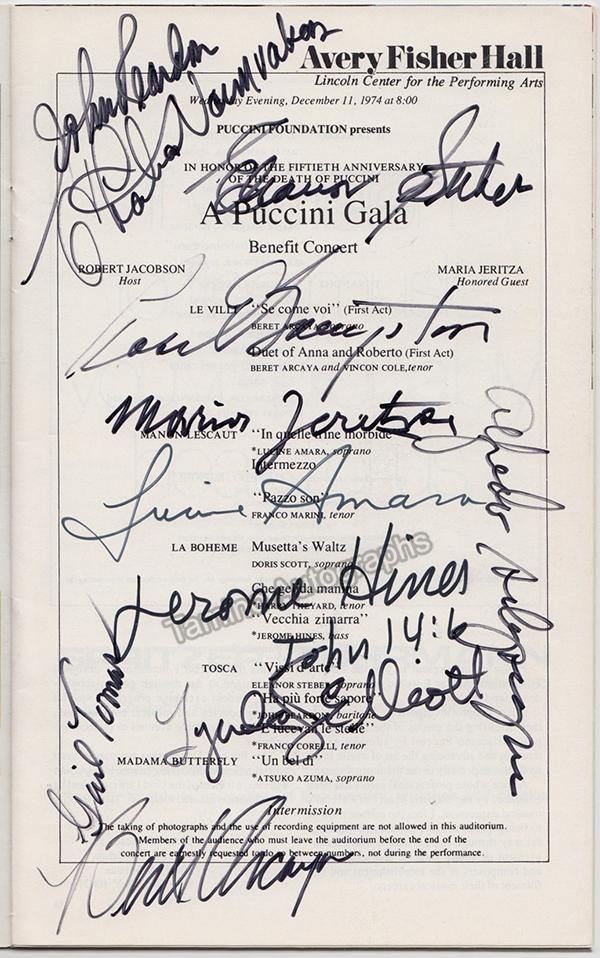 Avery Fisher Hall
Lincoln Center for the Performing Arts
Wednesday Evening, December 11, 1974 at 8:00
PUCCINI FOUNDATION presents
IN HONOR OF THE FIFTIETH ANNIVERSARY
OF THE DEATH OF PUCCINI
A Puccini Gala
Benefit Concert
ROBERT JACOBSON
Host
MARIA JERITZA
Honored Guest
LE VILLI "Se come voi" (First Act)
BERET ARCAYA, soprano
Duet of Anna and Roberto (First Act)
BERET ARCAYA and VINCON COLE, tenor
MANON LESCAUT "In quelle trine morbide"
*LUCINE AMARA, soprano
Intermezzo
"Pazzo son"
FRANCO MARINI, tenor
LA BOHEME Musetta's Waltz
DORIS SCOTT, soprano
Che gelida manina
*HARRY THEYARD, tenor
"Vecchia zimarra"
*JEROME HINES, bass
TOSCA "Vissi d'arte"
ELEANOR STEBER, soprano
"Ha più forte sapore"
*JOHN REARDON, baritone
"E lucevan le stelle"
*FRANCO CORELLI, tenor
MADAMA BUTTERFLY "Un bel di"
*ATSUKO AZUMA, soprano
Intermission
The taking of photographs and the use of recording equipment are not allowed in this auditorium.
Members of the audience who must leave the auditorium before the end of the
concert are earnestly requested to do so between numbers, not during the performance.
John Reardon
Eleanor Steber
Rose Bampton
Maria Jeritza
Lucine Amara
Jerome Hines
John 14:6
Alfredo
Beret Arcaya
Tamino Autographs